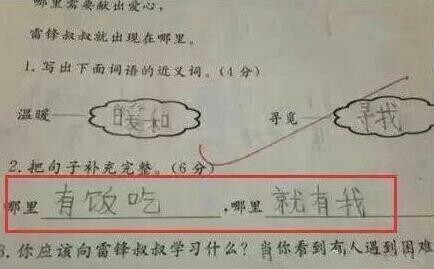 哪里需要献出爱心，
雷锋叔叔就出现在哪里。
1. 写出下面词语的近义词。(4分)
温暖 暖和 寻觅 寻找
2. 把句子补充完整。(6分)
哪里 有饭吃 ，哪里 就有我
3. 你应该向雷锋叔叔学习什么？当你看到有人遇到困难